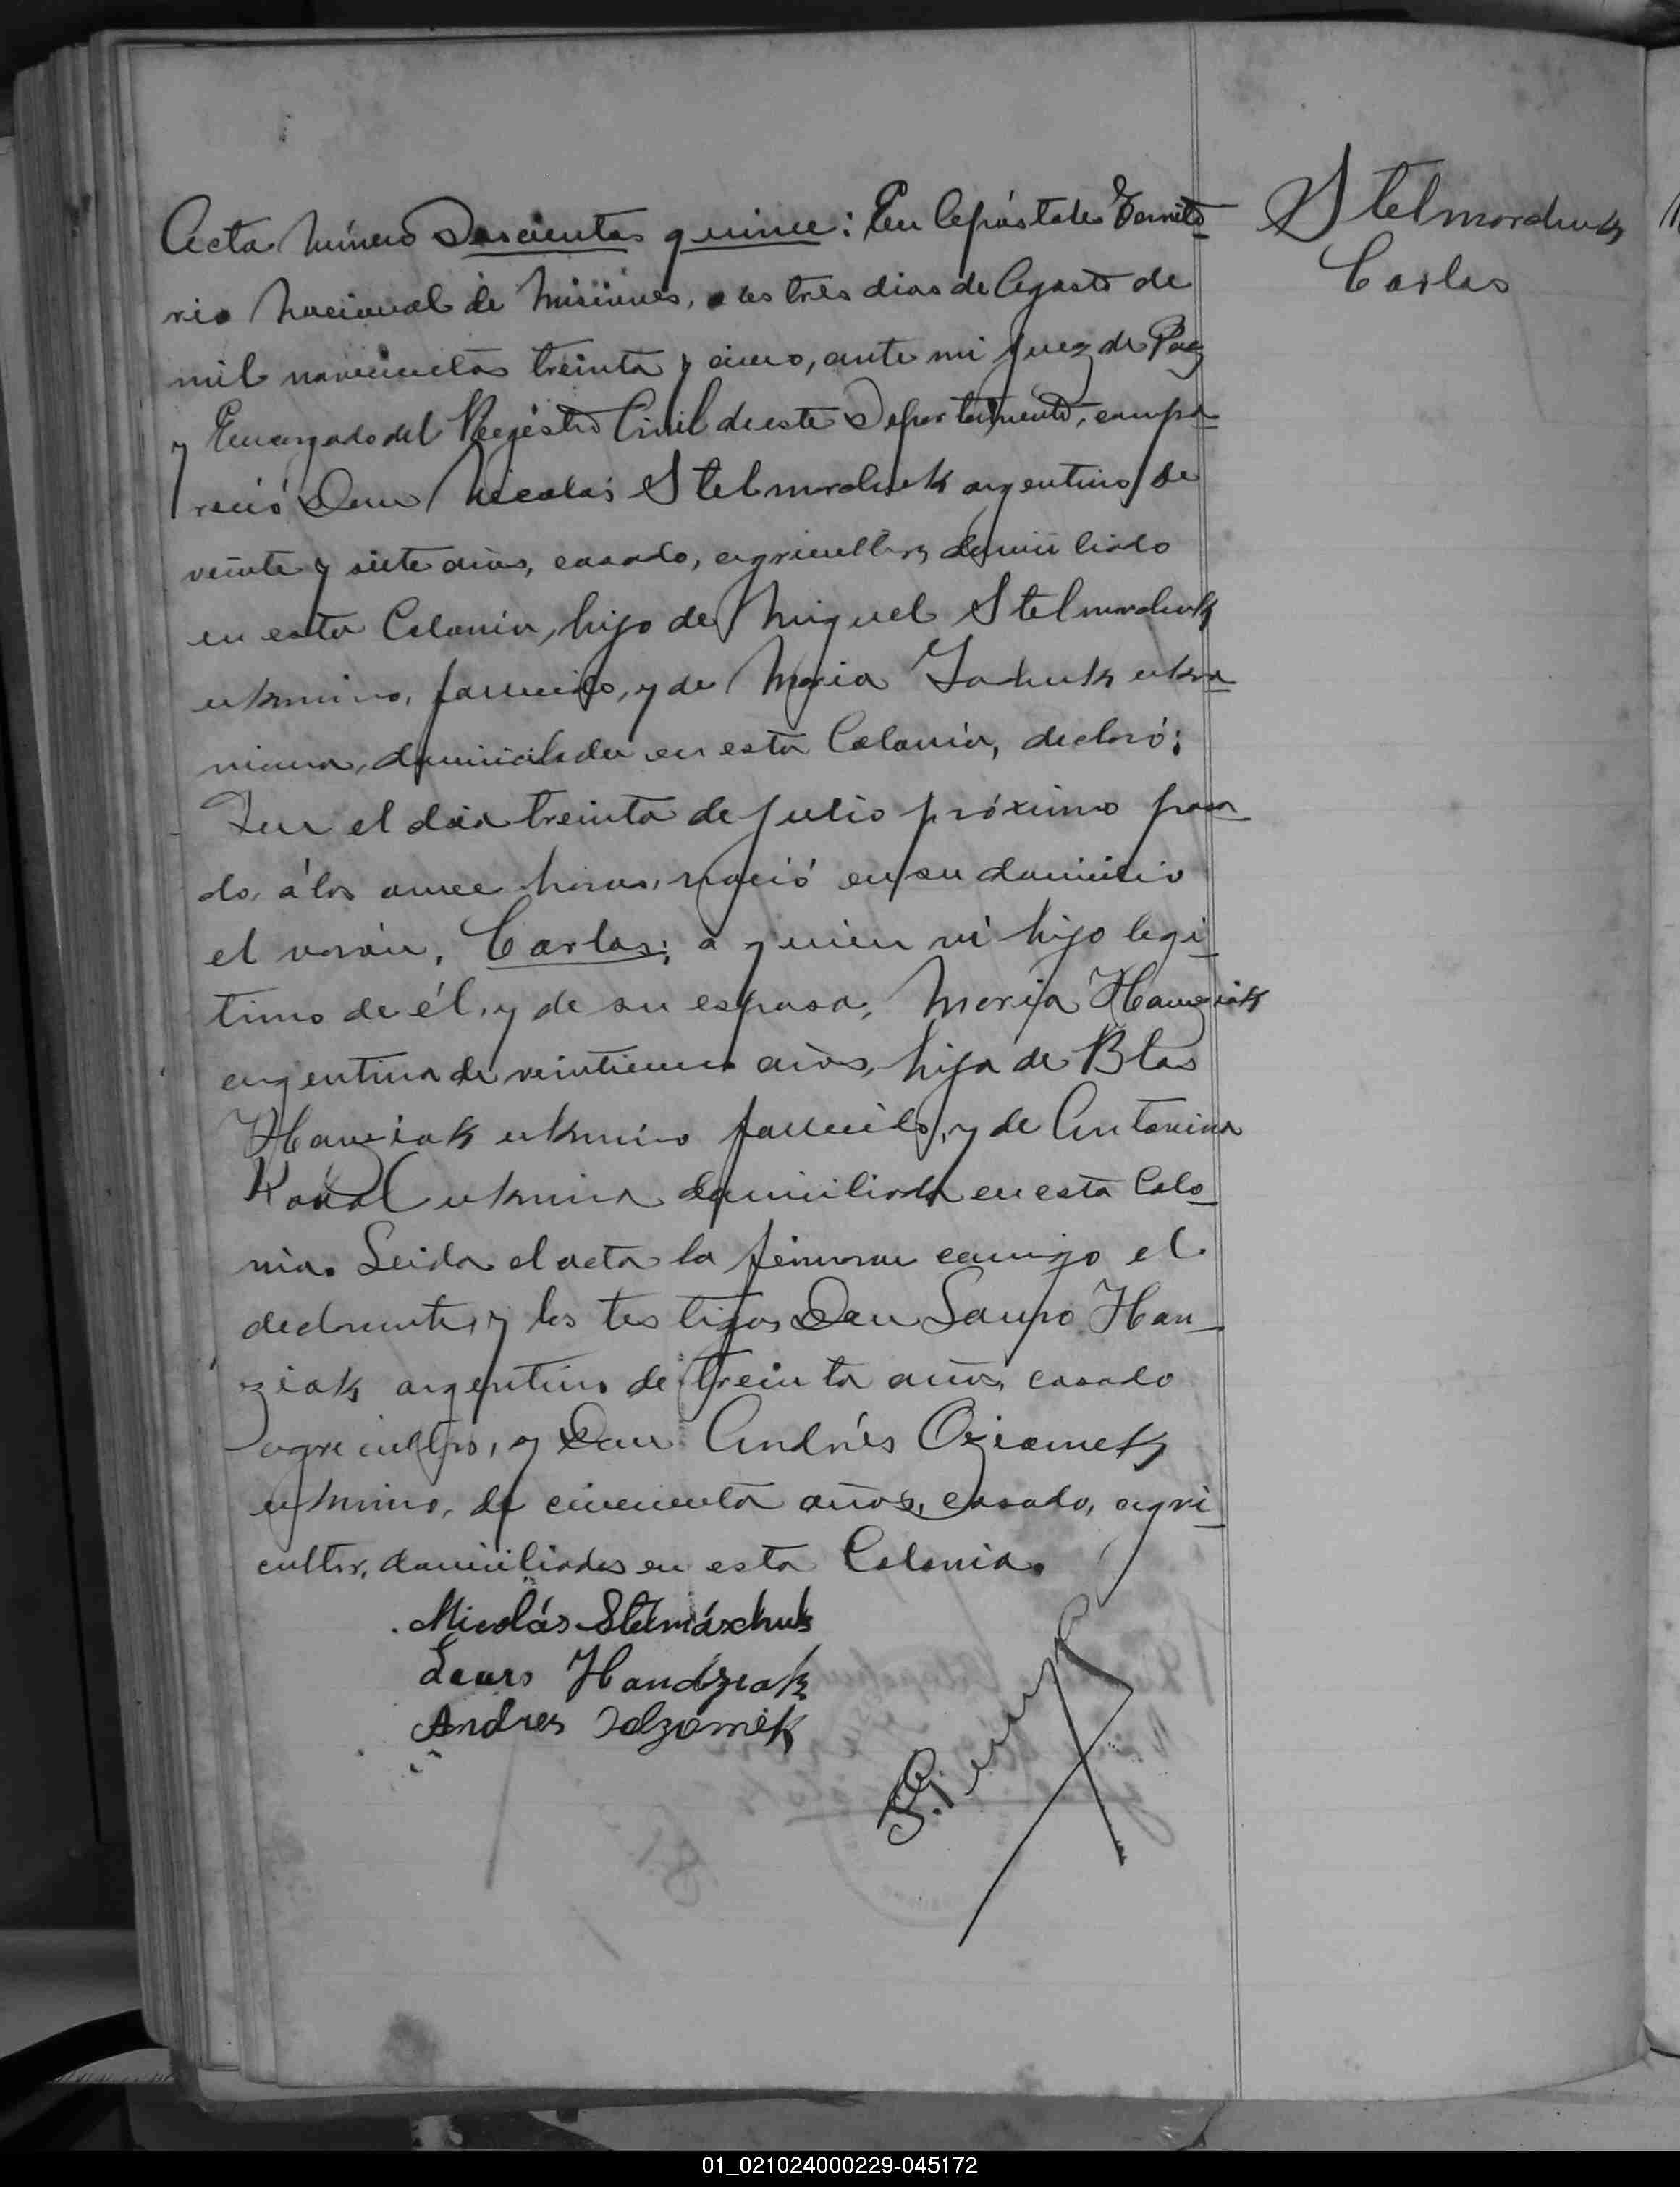 Acta número Doscientos quince: En Apóstoles Territo-
rio Nacional de Misiones, a los tres dias de Agosto de
mil novecientos treinta y cinco, ante mi Juez de Paz
y Encargado del Registro Civil de este Departamento, compa-
reció Don Nicolás Stelmarchuk argentino de
veinte y siete años, casado, agricultor, domiciliado
en esta Colonia, hijo de Miguel Stelmarchuk
ukranino, fallecido, y de Maria ukra-
niana, domiciliada en esta Colonia, declaró:
Que el dia treinta de Julio próximo pasa-
do, á las once horas, nació en su domicilio
el varón, Carlos; a quien vi hijo legi-
timo de él, y de su esposa, Maria Hanziak
argentina de veinticinco años, hija de Blas
Hanziak ukranino fallecido, y de Antonina
ukranina domiciliada en esta Colo-
nia. Leida el acta la firmaron conmigo el
declarante, y los testigos Don Lauro Han-
ziak argentino de treinta años, casado
agricultor, y Don Andrés Oziomek
ukranino, de cincuenta años, casado, agri-
cultor, domiciliados en esta Colonia.
Nicolás Stelmáschuk
Lauro Handziak
Andres
Stelmarchuk
Carlos
01_021024000229-045172